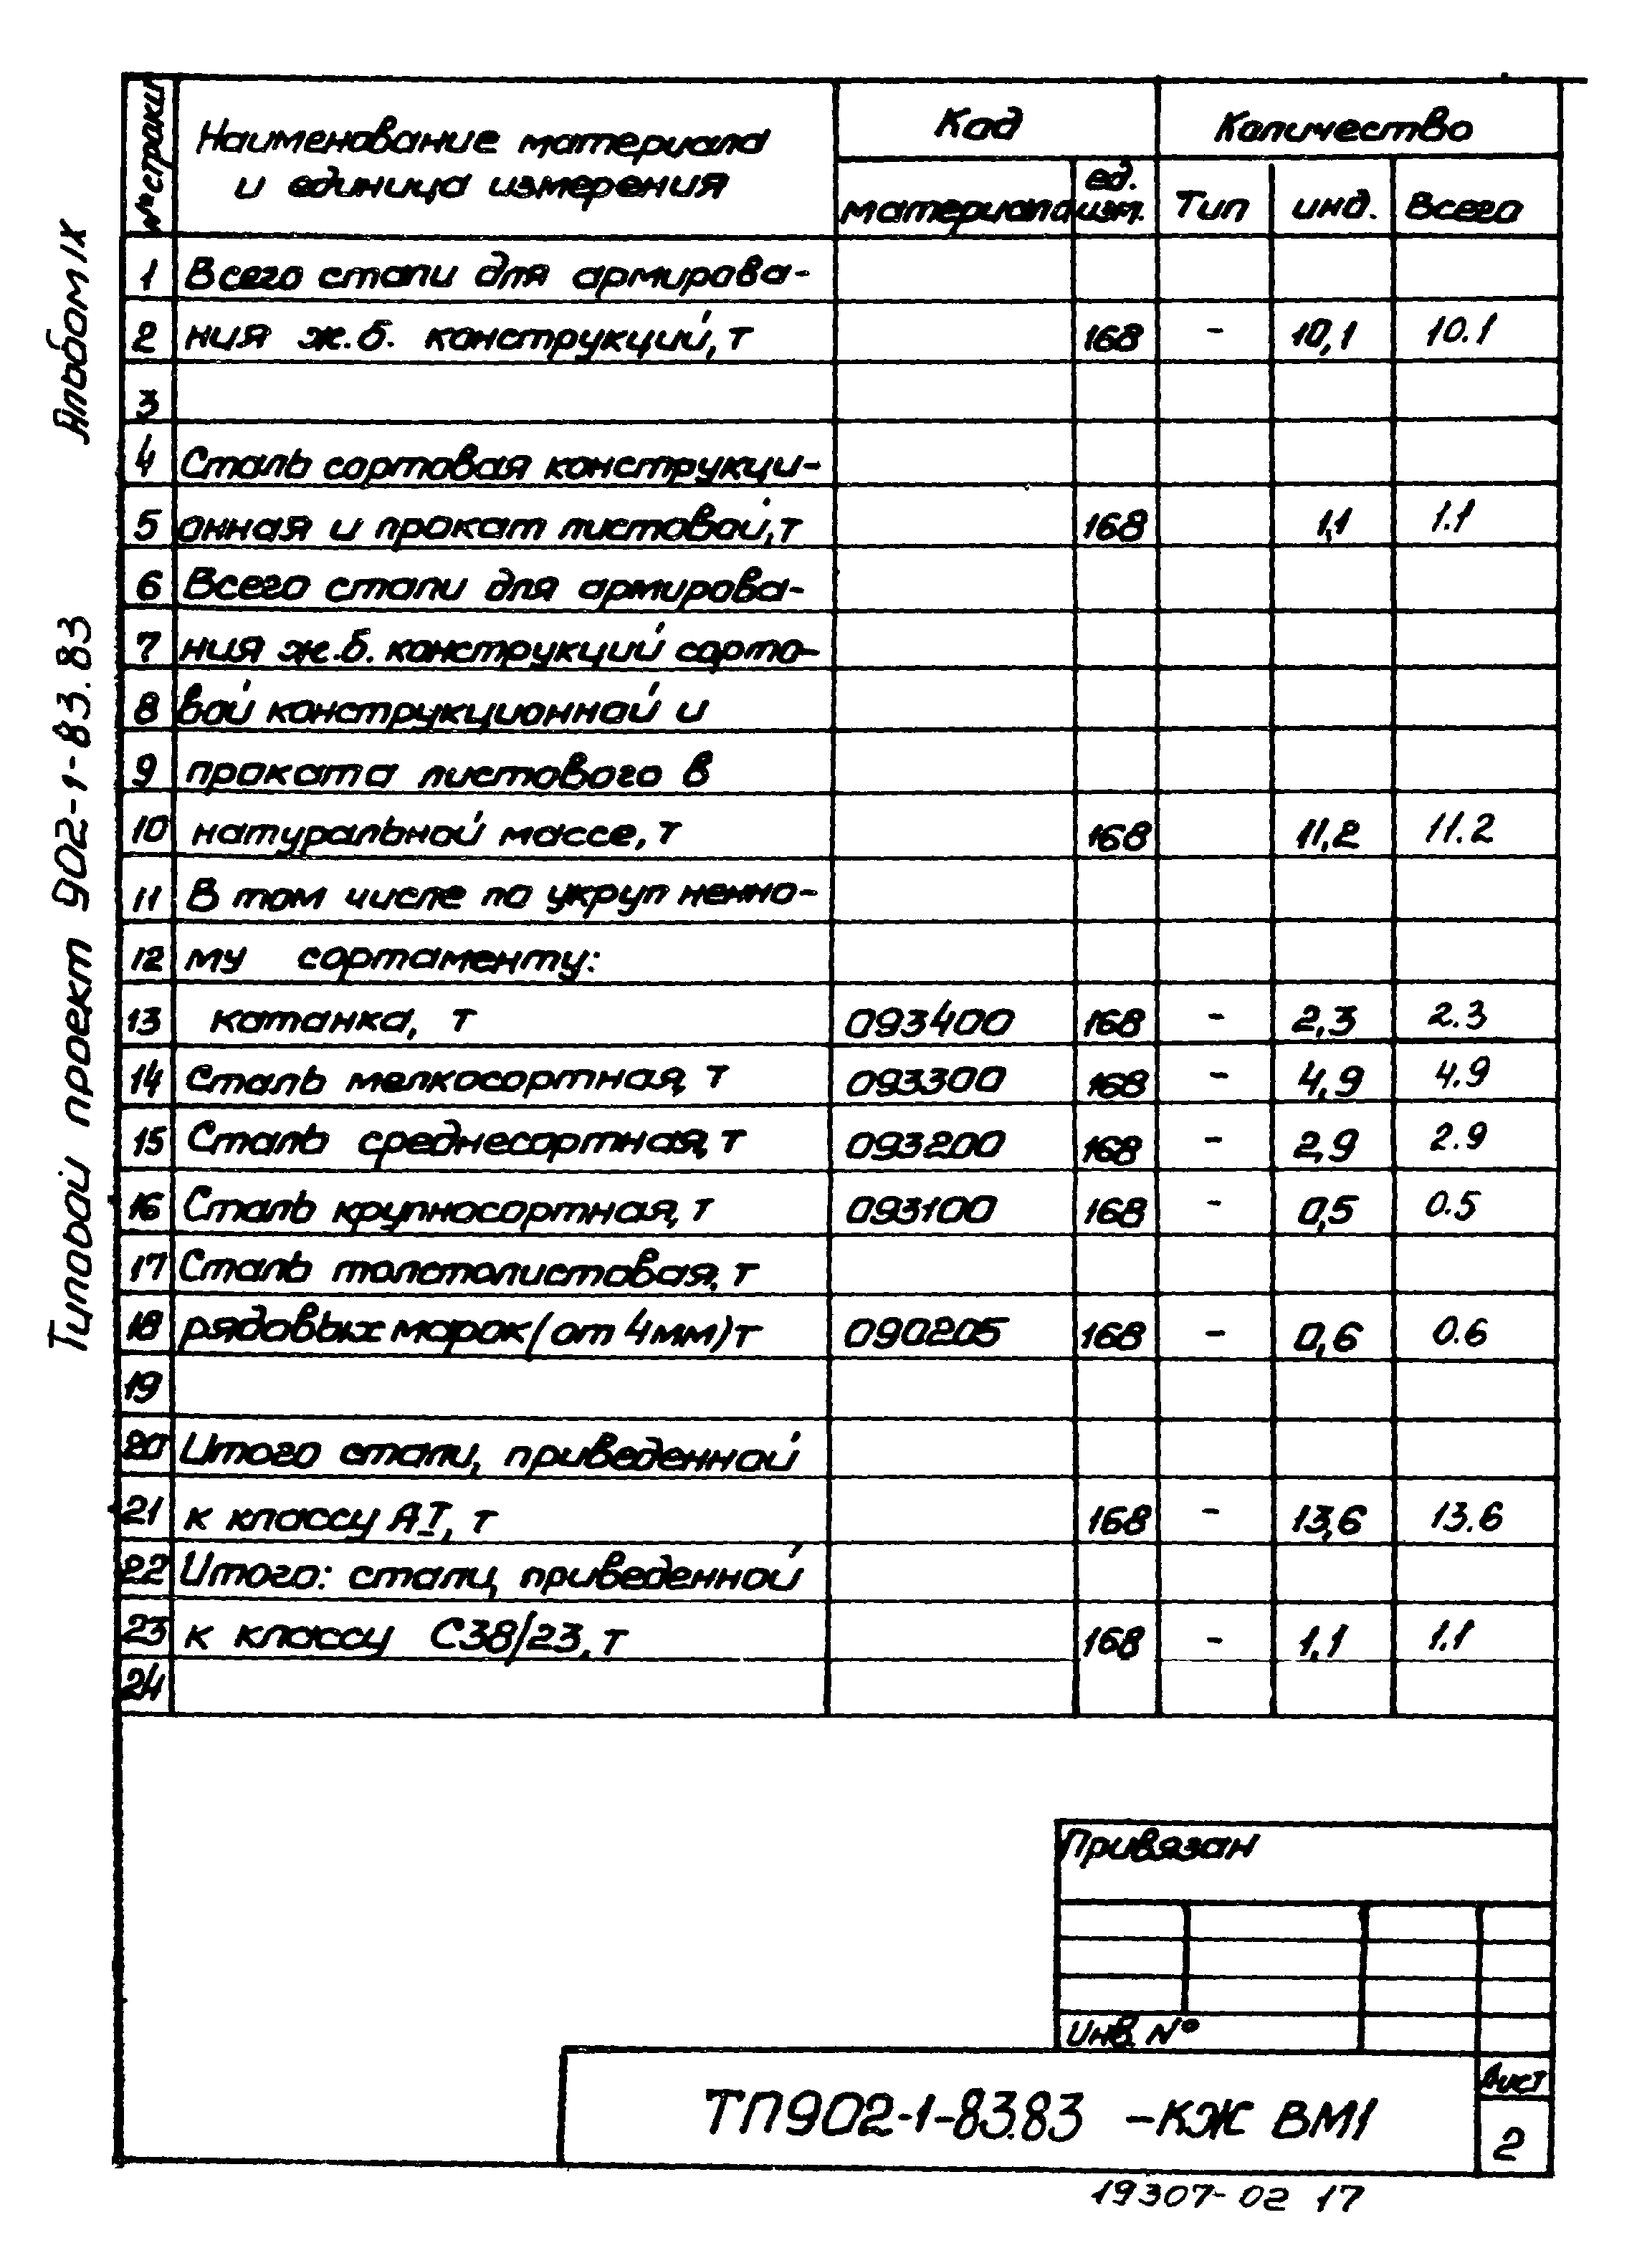 Альбом IX
Типовой проект 902-1-83.83
№ строки
Наименование материала
и единица измерения
Код
Количество
материала
ед.
изм.
Тип
инд.
Всего
1 Всего стали для армирова-
2 ния ж.б. конструкций, т 168 - 10,1 10.1
3
4 Сталь сортовая конструкци-
5 онная и прокат листовой, т 168 1,1 1.1
6 Всего стали для армирова-
7 ния ж.б. конструкций сорто-
8 вой конструкционной и
9 проката листового в
10 натуральной массе, т 168 11,2 11.2
11 В том числе по укруп ненно-
12 му сортаменту:
13 катанка, т 093400 168 - 2,3 2.3
14 Сталь мелкосортная, т 093300 168 - 4,9 4.9
15 Сталь среднесортная, т 093200 168 - 2,9 2.9
16 Сталь крупносортная, т 093100 168 - 0,5 0.5
17 Сталь толстолистовая, т
18 рядовых марок (от 4мм) т 090205 168 - 0,6 0.6
19
20 Итого стали, приведенной
21 к классу АI, т 168 - 13,6 13.6
22 Итого: стали, приведенной
23 к классу С38/23, т 168 - 1,1 1.1
24
Привязан
Инв. №
ТП902-1-83.83 -КЖ ВМ1
Лист
2
19307-02 17